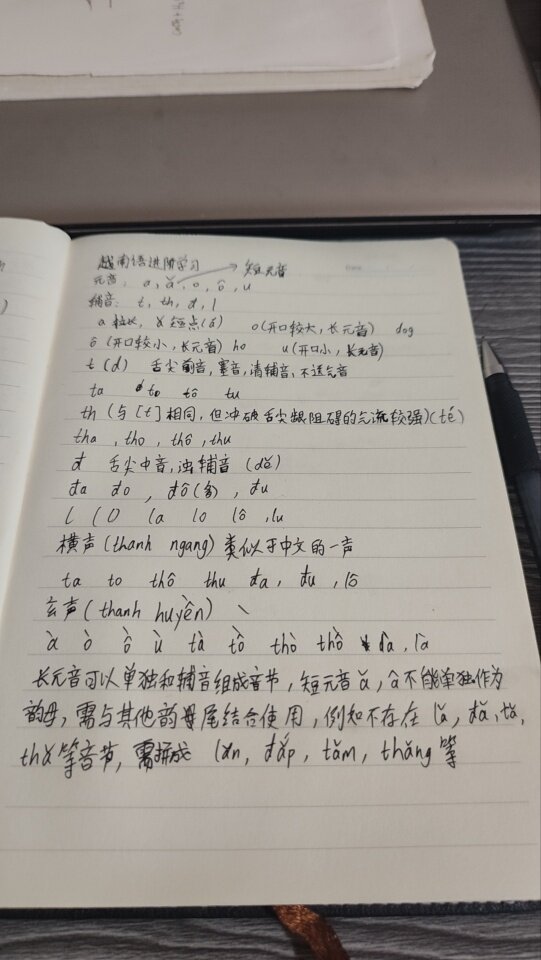 越南语进阶学习
短元音
元音: a, ă, o, ô, u
辅音: t, th, đ, l
a 拉长, ă 短点(ā) o(开口较大, 长元音) dog
ô (开口较小, 长元音) ho u(开口小, 长元音)
t (d) 舌尖前音, 塞音, 清辅音, 不送气音
ta to tô tu
th (与[t]相同, 但冲破舌尖龈阻碍的气流较强)(té)
tha , tho , thô , thu
đ 舌尖中音, 浊辅音 (dě)
đa đo , đô(多) , đu
l (l) la lo lô , lu
横声 (thanh ngang) 类似于中文的一声
ta to thô thu đa , đu , lô
玄声 (thanh huyền) \
à ò ồ ù tà tồ thò thồ đà, là
长元音可以单独和辅音组成音节, 短元音 ă, â 不能单独作为
韵母, 需与其他韵母尾结合使用, 例如不存在 lă, đă, tă,
thă 等音节, 需拼成 lăn, đắp, tăm, thăng 等